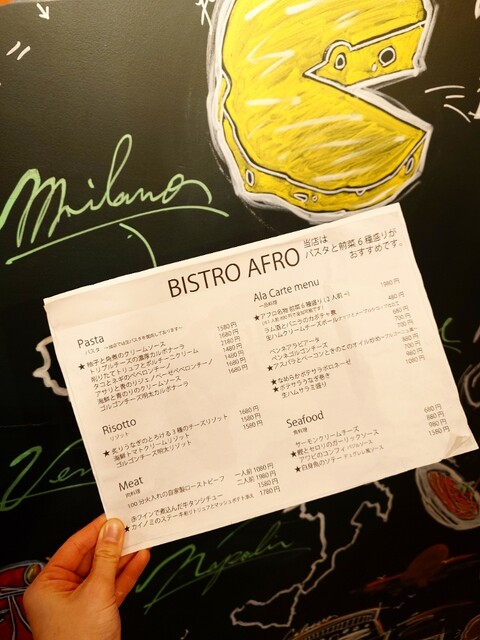 Milano
BISTRO AFRO
当店は
パスタと前菜6種盛りが
おすすめです。
Pasta
パスタ ～当店では生パスタを使用しております～
★柚子と角煮のクリームソース 1580円
トリュフチーズの濃厚カルボナーラ 1580円
削りたてトリュフとポルチーニクリーム 2180円
タコとネギのペペロンチーノ 1480円
アサリと青のりジェノベーゼペペロンチーノ
海鮮と青のりのクリームソース 1680円
ゴルゴンチーズ明太カルボナーラ 1680円
Risotto
リゾット
★炙りうなぎのとろける3種のチーズリゾット 1680円
海鮮トマトクリームリゾット 1580円
ゴルゴンチーズ明太リゾット 1580円
Meat
肉料理
100分火入れの自家製ローストビーフ 一人前 1080円
二人前 1980円
赤ワインで煮込んだ牛タンシチュー 1580円
★カイノミのステーキ 1780円
Ala Carte menu
一品料理
★アフロ名物 前菜6種盛り(2人前～) 1980円
ラム酒とバニラのカボチャ煮 480円
生ハムクリームチーズポールナッツ
ペンネアラビアータ
ペンネゴルゴンチーズ
★アスパラとベーコンときのこのオイル炒め
★なめらかポテサラボロネーゼ
★ポテサラうなぎ巻き
生ハムサラミ盛り 1080円
Seafood
魚料理
サーモンクリームチーズ 680円
★鰹とセロリのガーリックソース 880円
アワビのコンフィ バジルソース 980円
★白身魚のソテー デュグレレ風ソース 1580円
Napoli